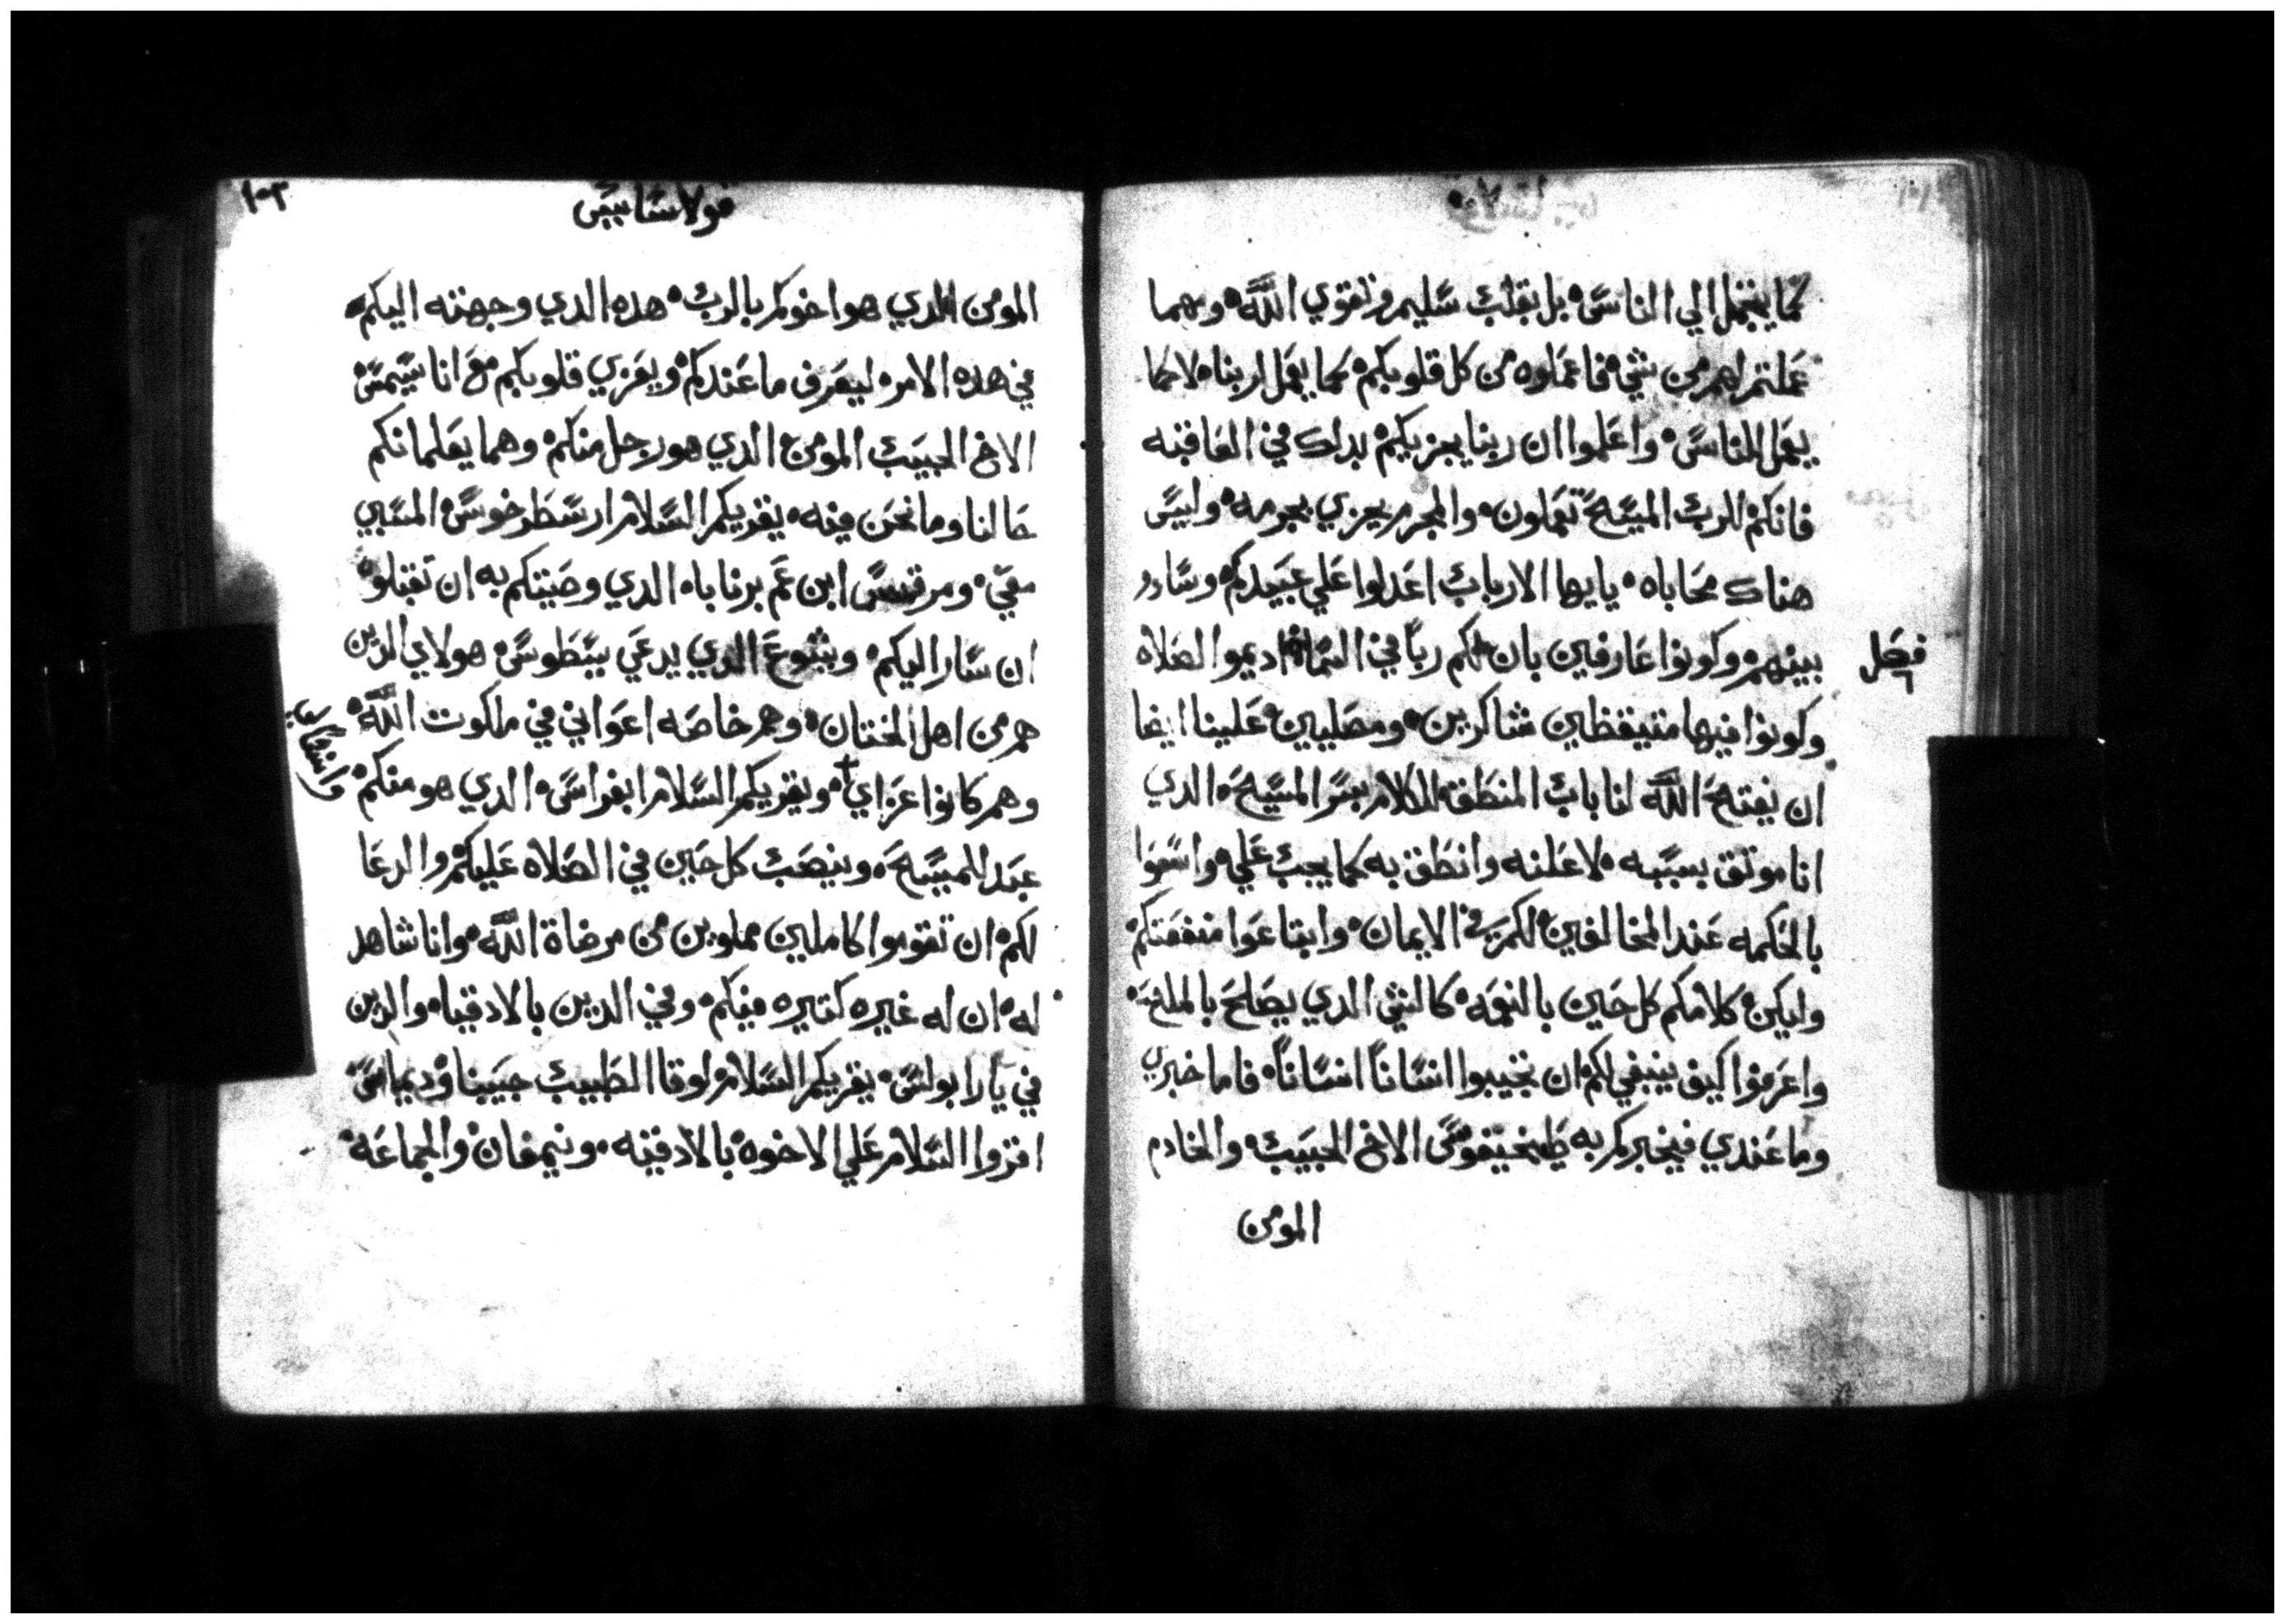 كما يتجمل الي الناس بل بقلب سليم وتقوي الله ومهما
عملتم لهم من شي فاعملوه من كل قلوبكم كما يعمل لربنا لا كما
يعمل للناس واعلموا ان ربنا يجزيكم بداك في العاقبه
فانكم للرب المسيح تعملون والمجرم يجزي بجرمه وليس
هناك محاباه يايها الارباب اعدلوا علي عبيدكم وساوو
فصل
بينهم وكونوا عارفين بان لكم ربا في السما اديموا الصلاه
وكونوا فيها متيقظين شاكرين ومصليين علينا ايضا
ان يفتح الله لنا باب المنطق الكلام بسر المسيح الدي
انا موتق بسببه لاعلنه وانطق به كما يجب علي واسعوا
بالحكمه عند المخالفين لكم في الايمان وابتاعوا منفعتكم
وليكن كلامكم كل حين بالنعمه كالشي الدي يصلح بالملح
واعرفوا كيف ينبغي لكم ان تجيبوا انسانا انسانا فاما خبري
وما عندي فيخبركم به طيخيقوس الاخ الحبيب والخادم
المومن
١٠٢
قولاسايس
المومن الدي هو اخوكم بالرب هده الدي وجهته اليكم
في هده الامر ليعرف ما عندكم ويعزي قلوبكم مع اناسيمس
الاخ الحبيب المومن الدي هو رجل منكم وهما يعلمانكم
حالنا وما نحن فيه يقريكم السلام ارسطرخوس المسبي
معي ومرقس ابن عم برنابا الدي وصيتكم به ان تقبلوه
ان سار اليكم ويشوع الدي يدعي يسطوس هولاي الدين
هم من اهل الختان وهم خاصه اعواني في ملكوت الله
وهم كانوا عزاي ويقريكم السلام ابفراس الدي هو منكم
عبد للمسيح وينصب كل حين في الصلاه عليكم والدعا
لكم ان تقوموا كاملين مملوين من مرضاة الله وانا شاهد
له ان له غيره كتيره فيكم وفي الدين بالادقيا والدين
في يارابولس يقريكم السلام لوقا الطبيب حبيبنا وديماس
اقروا السلام علي الاخوه بالادقيه ونيمفان والجماعه